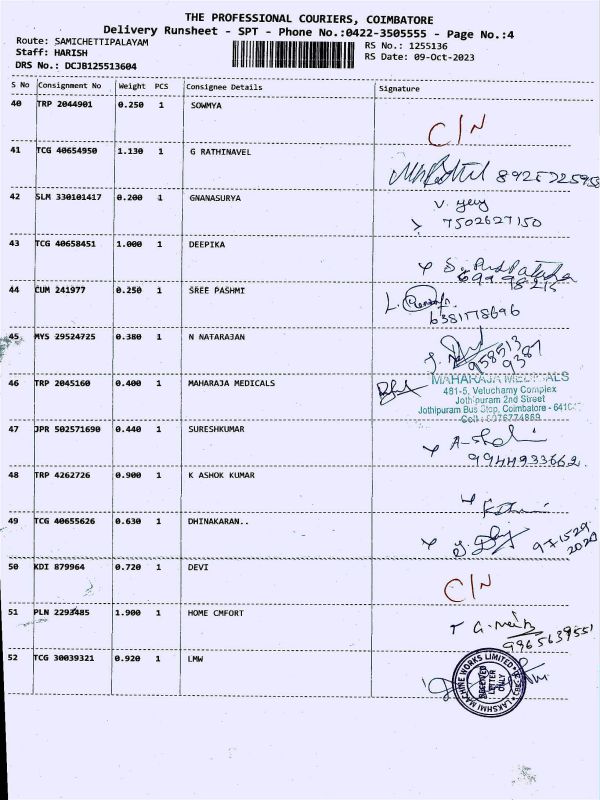 THE PROFESSIONAL COURIERS, COIMBATORE
Delivery Runsheet - SPT - Phone No.:0422-3505555 - Page No.:4
Route: SAMICHETTIPALAYAM
RS No.: 1255136
Staff: HARISH
RS Date: 09-Oct-2023
DRS No.: DCJB125513604
S No Consignment No Weight PCS Consignee Details Signature
40 TRP 2044901 0.250 1 SOWMYA C/N
41 TCG 40654950 1.130 1 G RATHINAVEL
42 SLM 330101417 0.200 1 GNANASURYA
7502627150
43 TCG 40658451 1.000 1 DEEPIKA
44 CUM 241977 0.250 1 SREE PASHMI
6381178696
45 MYS 29524725 0.380 1 N NATARAJAN
958513
9387
46 TRP 2045160 0.400 1 MAHARAJA MEDICALS
481-5, Veluchamy Complex
Jothipuram 2nd Street
Jothipuram Bus Stop, Coimbatore - 641
47 JPR 502571690 0.440 1 SURESHKUMAR
9944933662
48 TRP 4262726 0.900 1 K ASHOK KUMAR
49 TCG 40655626 0.630 1 DHINAKARAN..
50 KDI 879964 0.720 1 DEVI C/N
51 PLN 2293485 1.900 1 HOME CMFORT
9965639551
52 TCG 30039321 0.920 1 LMW
LAKSHMI MACHINE WORKS LIMITED
RECEIVED
LETTER
ONLY